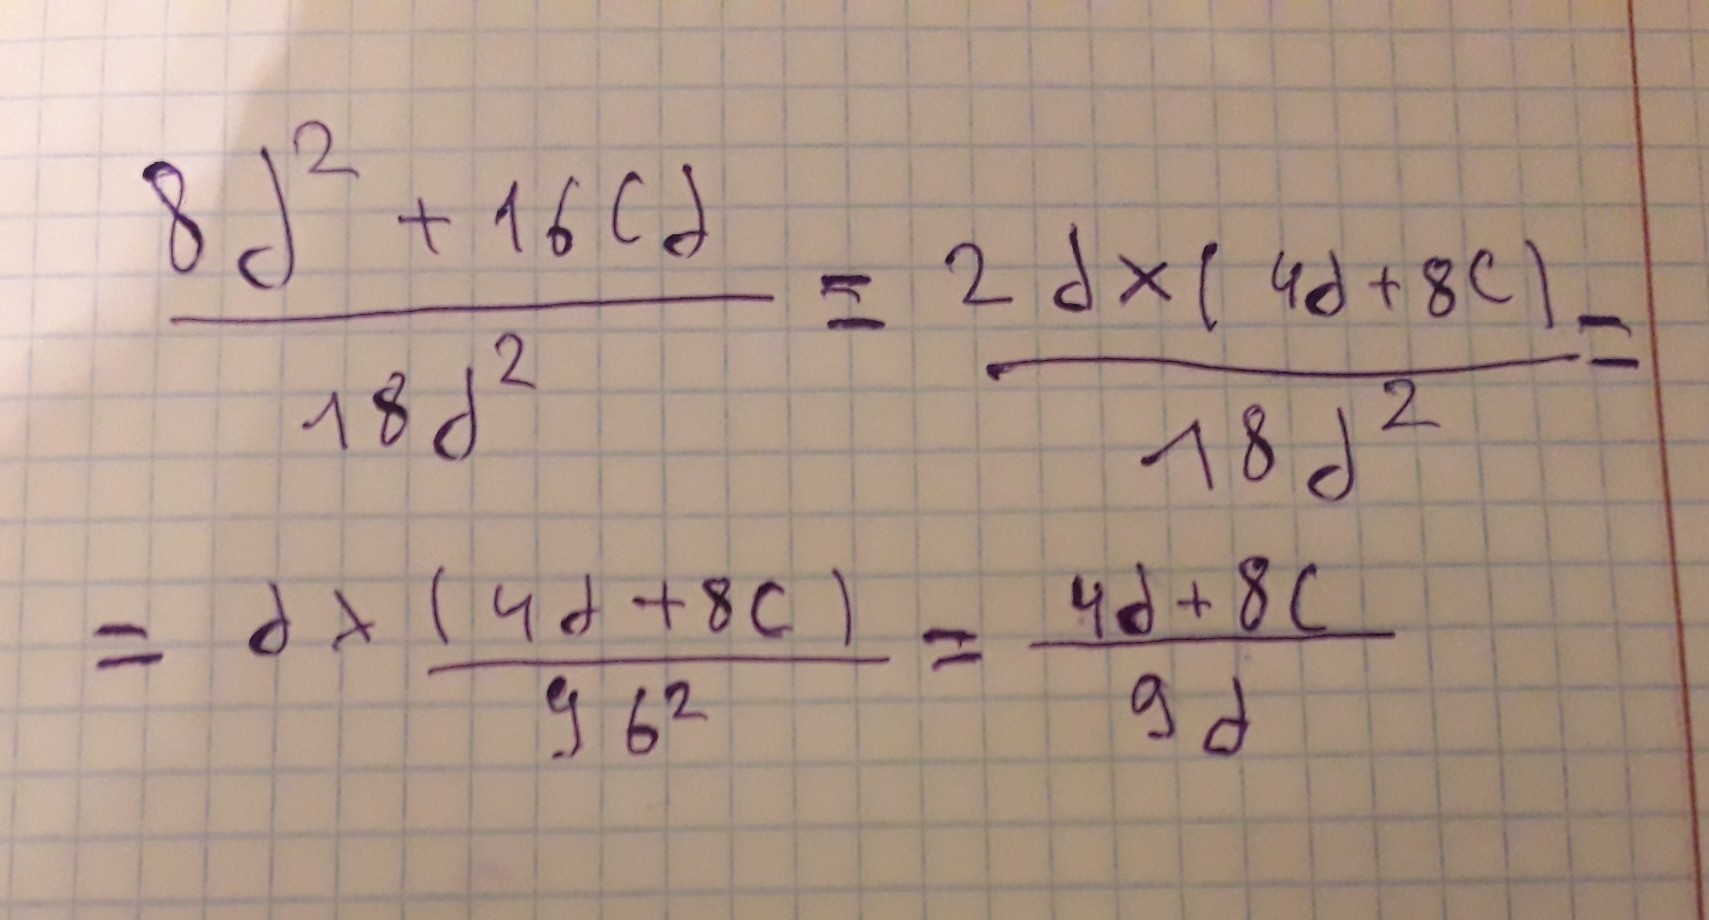 8d² + 16Cd / 18d² = 2d×(4d+8C) / 18d² =
= d×(4d+8C) / 96² = 4d+8C / 9d